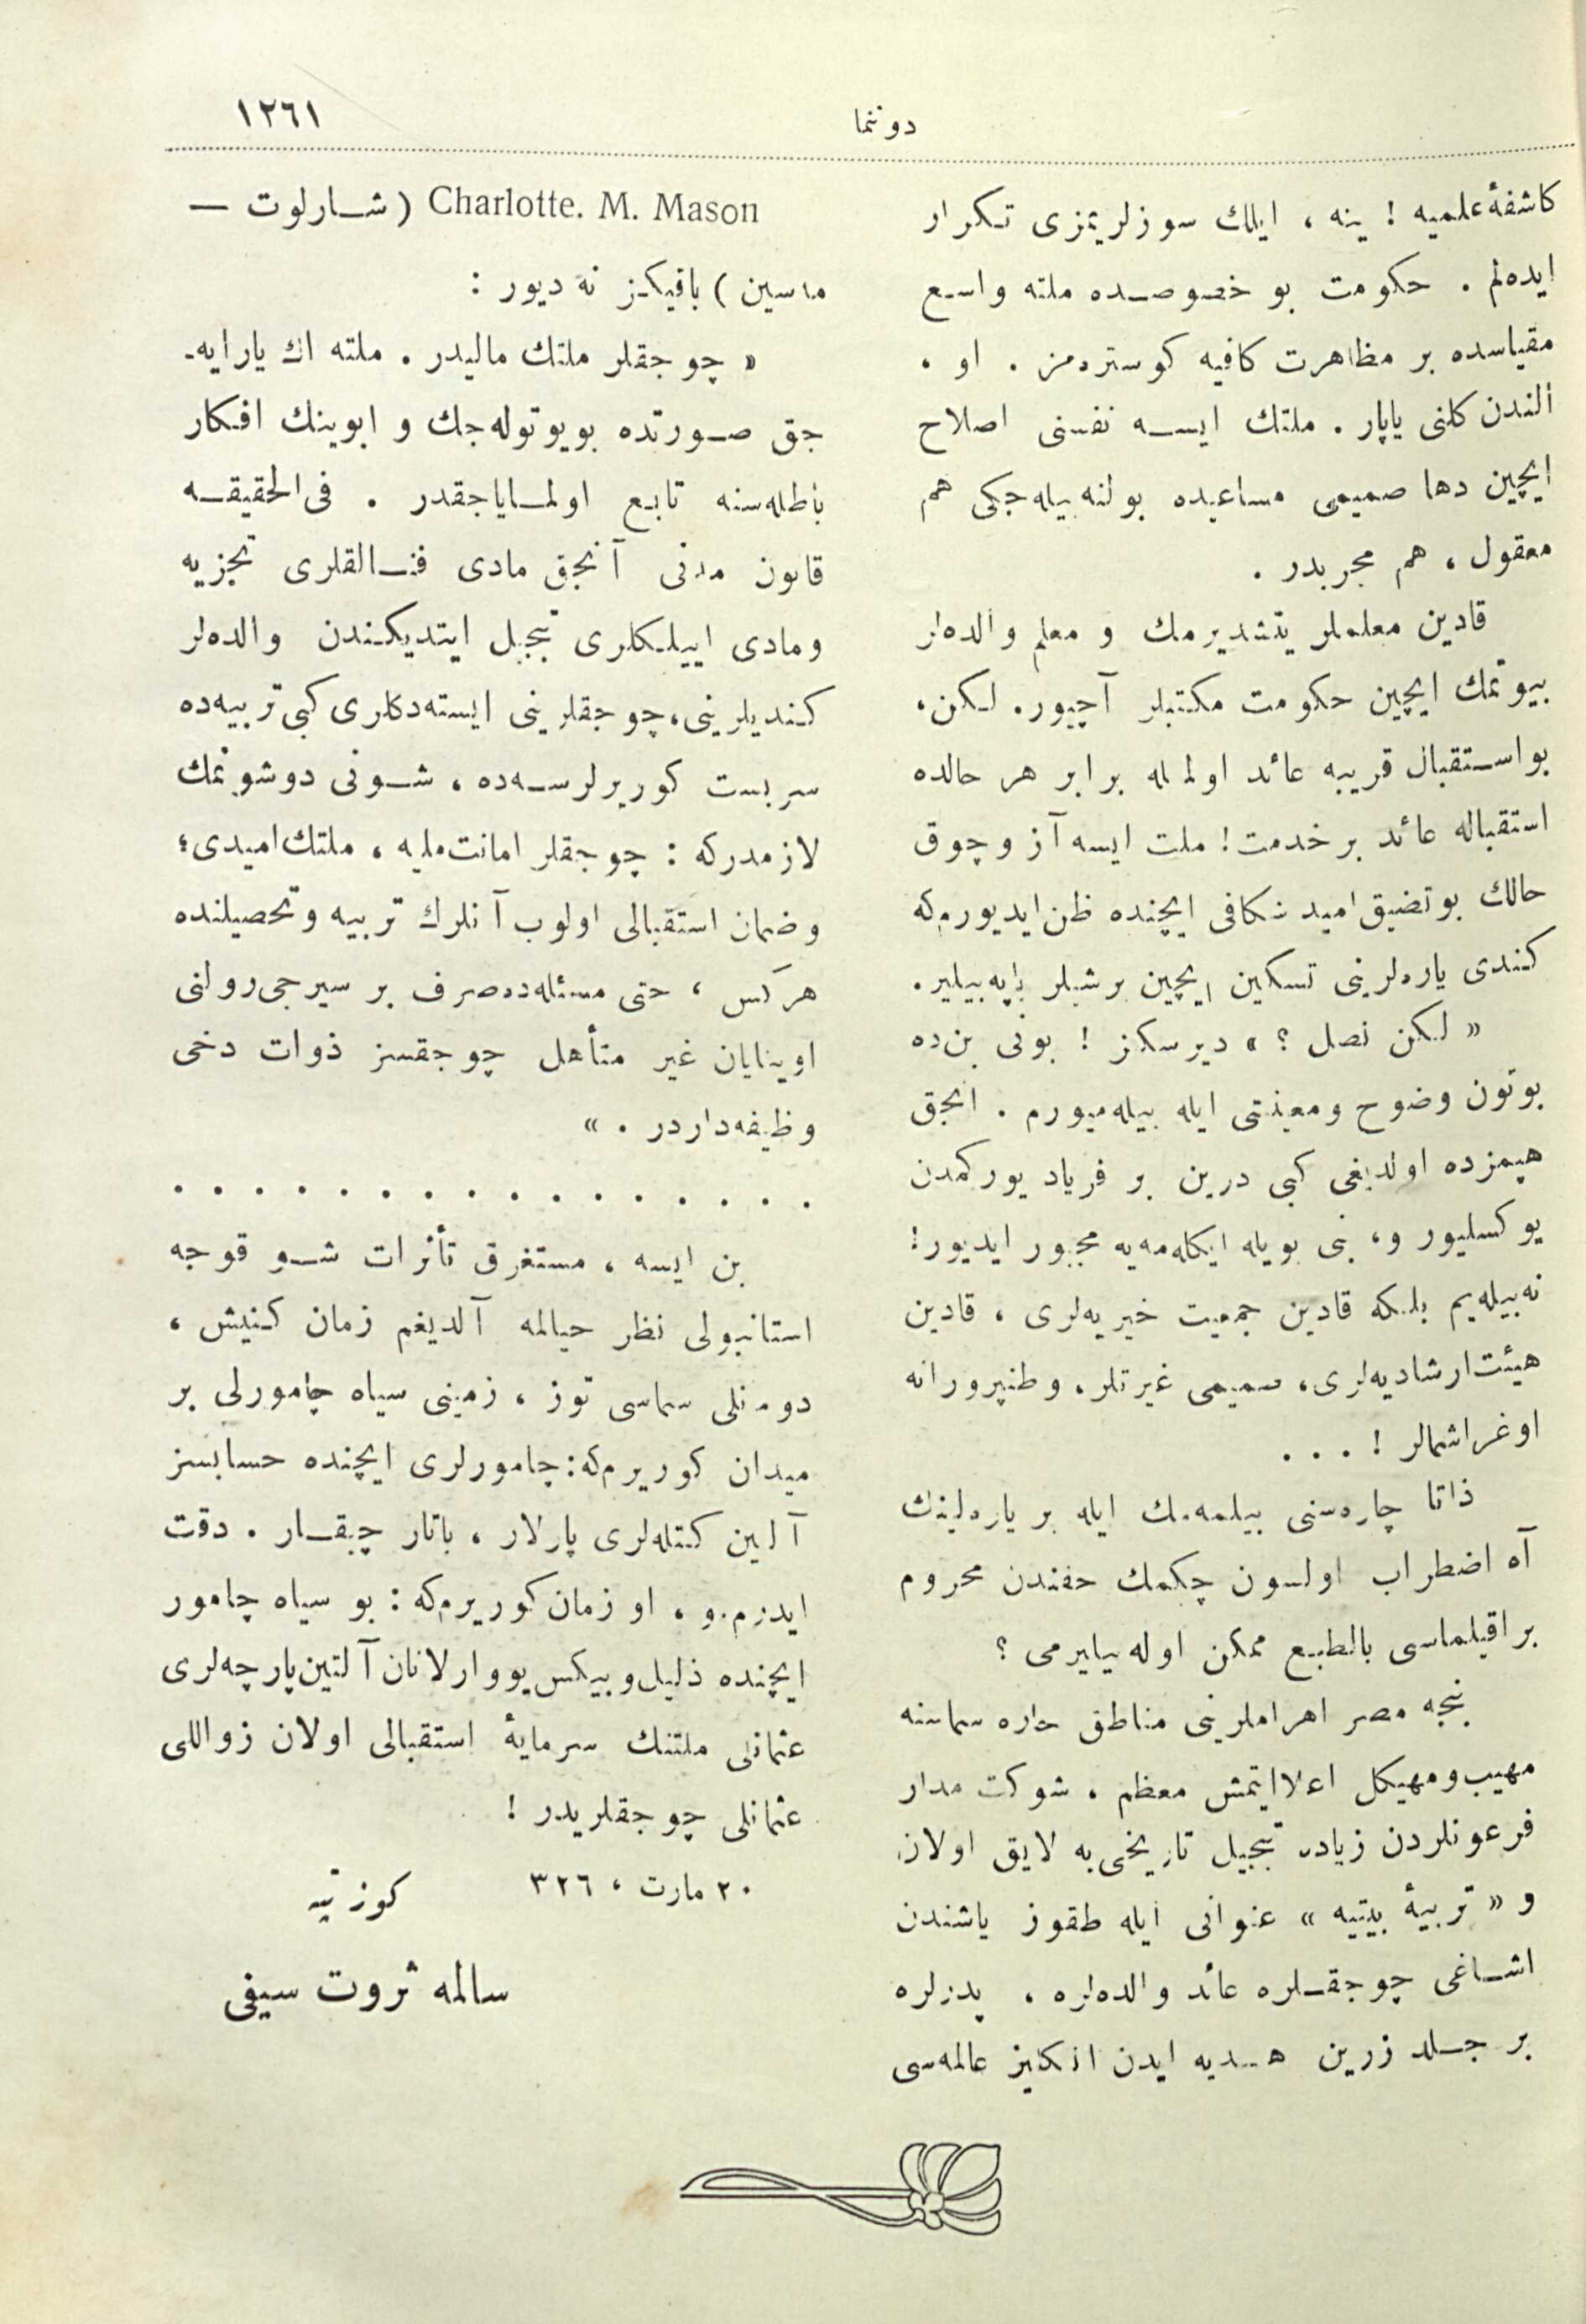 دوننما
١٢٦١
كاشفۀ علميه ! ينه ، ايلك سوزلريمزى تكرار
ايده‌لم . حكومت بو خصوصده ملته واسع
مقياسده بر مظاهرت كافيه كوستره‌مز . او ،
ألندن كلنى ياپار . ملتك ايسه نفسنى اصلاح
ايچين دها صميمى مساعيده بولنه‌بيله‌جكى هم
معقول ، هم مجربدر .
قادين معلملر يتشديرمك و معلم والده‌لر
بيوتمك ايچين حكومت مكتبلر آچيور. لكن،
بو استقبال قريبه عائد اولمله برابر هر حالده
استقباله عائد بر خدمت! ملت ايسه آز و چوق
حالك بو تضيق اميد شكافى ايچنده ظن ايديورم‌كه
كندى ياره‌لرينى تسكين ايچين بر شيلر ياپه‌بيلير.
« لكن نصل ؟ » ديرسكز ! بونى بن‌ده
بوتون وضوح ومعيتى ايله بيله‌ميورم . انجق
هپمزده اولديغى كبى درين بر فرياد يوركمدن
يوكسليور و، بنى بويله ايكله‌مه‌يه مجبور ايديور!
نه بيله‌يم بلكه قادين جمعيت خيريه‌لرى ، قادين
هيئت ارشاديه‌لرى، صميمى غيرتلر، وطنپرورانه
اوغراشمالر ! . . .
ذاتا چاره‌سنى بيلمه‌مك ايله بر ياره‌لينك
آه اضطراب اولسون چكمك حقندن محروم
براقيلماسى بالطبع ممكن اوله‌بيليرمى ؟
نجه مصر اهراملرينى مناطق حاره سماسنه
مهيب ومهيكل اعلا ايتمش معظم ، شوكت مدار
فرعونلردن زياده تبجيل تاريخى‌يه لايق اولان
و « تربيۀ بيتيه » عنوانى ايله طقوز ياشندن
اشاغى چوجقلره عائد والده‌لره ، پدرلره
بر جلد زرين هديه ايدن انكليز عالمه‌سى
Charlotte. M. Mason ( شارلوت —
ماسين ) باقيكز نه ديور :
« چوجقلر ملتك ماليدر . ملته اك يارايه‌ـ
جق صورتده بويوتوله‌جك و ابوينك افكار
باطله‌سنه تابع اولماياجقدر . فى الحقيقه
قانون مدنى آنجق مادى فنالقلرى تجزيه
ومادى اييلكلرى تبجيل ايتديكندن والده‌لر
كنديلرينى، چوجقلرينى ايسته‌دكلرى كبى تربيه‌ده
سربست كوريرلرسه‌ده ، شونى دوشونمك
لازمدركه : چوجقلر امانت مليه ، ملتك اميدى؛
وضمان استقبالى اولوب آنلرك تربيه وتحصيلنده
هركس ، حتى مسئله‌ده صرف بر سيرجى رولنى
اوينايان غير متأهل چوجقسز ذوات دخى
وظيفه‌داردر . »
. . . . . . . . . . . . . . . .
بن ايسه ، مستغرق تأثرات شو قوجه
استانبولى نظر خيالمه آلديغم زمان كنيش ،
دومانلى سماسى توز ، زمينى سياه چامورلى بر
ميدان كوريرم‌كه: چامورلرى ايچنده حسابسز
آلتين كتله‌لرى پارلار ، باتار چيقار . دقت
ايدرم.و ، او زمان كوريرم‌كه : بو سياه چامور
ايچنده ذليل وبيكس يووارلانان آلتين پارچه‌لرى
عثمانلى ملتنك سرمايۀ استقبالى اولان زواللى
عثمانلى چوجقلريدر !
٢٠ مارت ، ٣٢٦
كوزتپه
سالمه ثروت سيفى